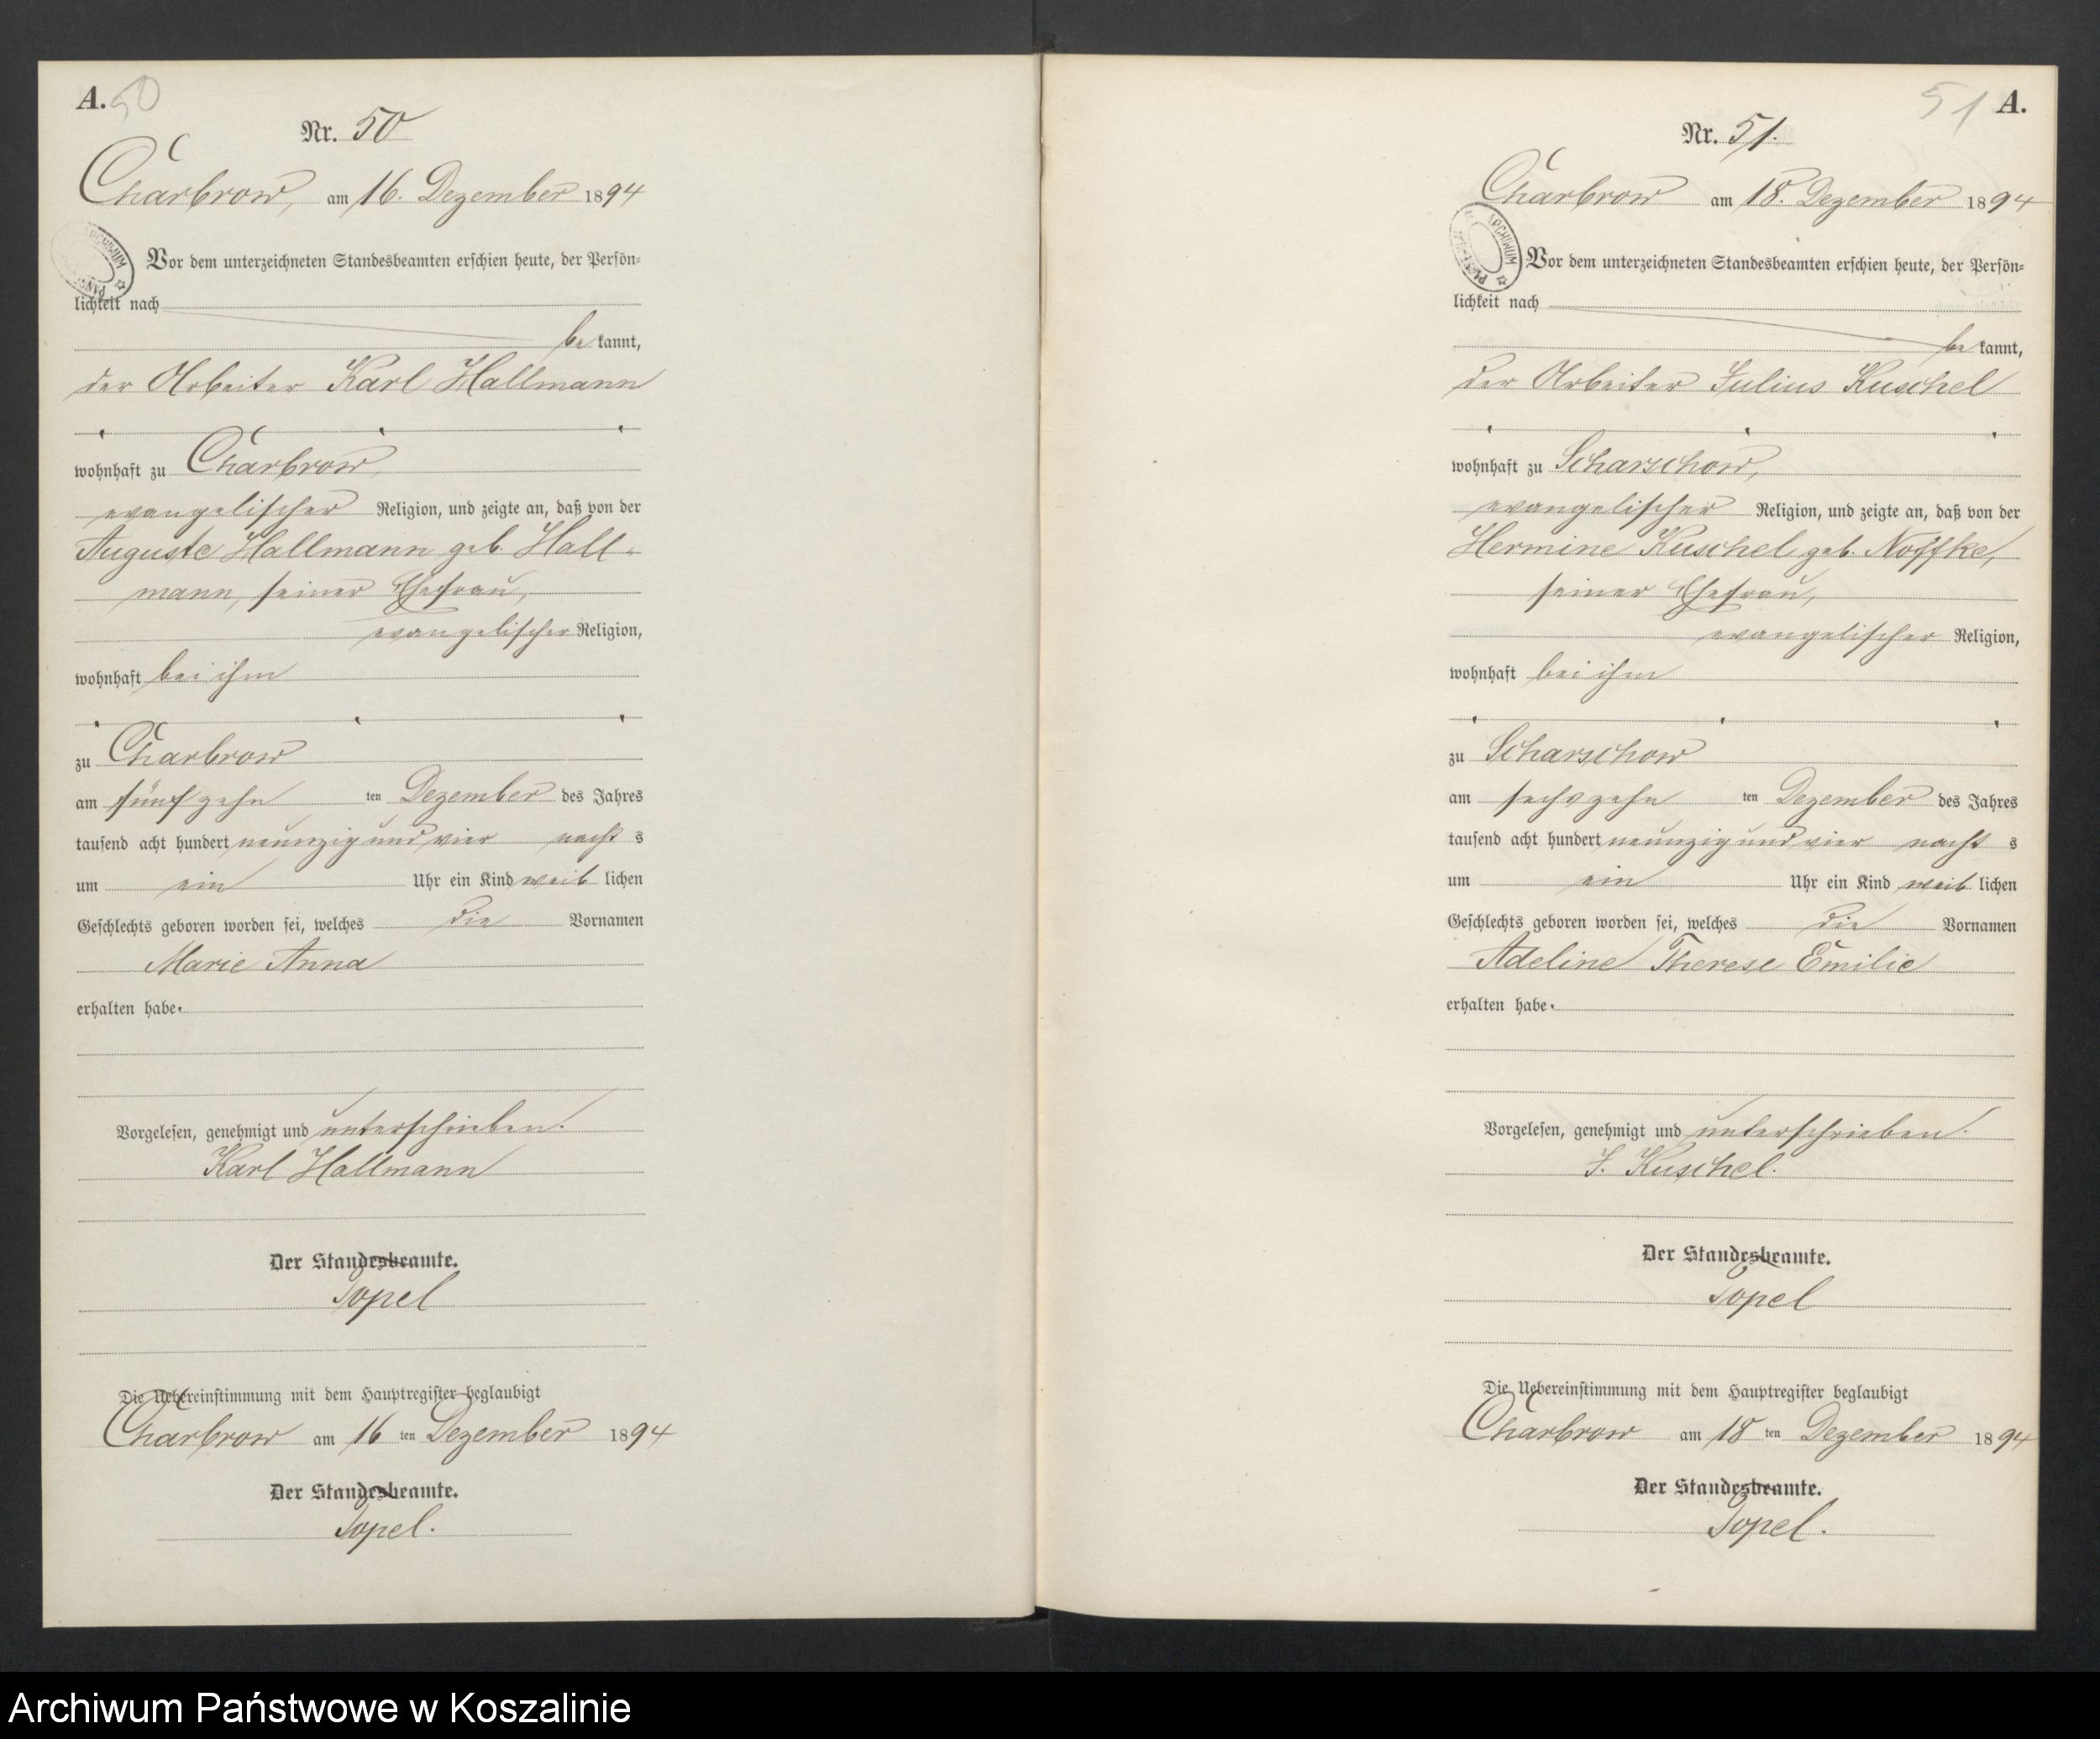 A. 50
Nr. 50
Charbrow, am 16. Dezember 1894
Vor dem unterzeichneten Standesbeamten erschien heute, der Persön-
lichkeit nach
be kannt,
der Arbeiter Karl Hallmann
wohnhaft zu Charbrow,
evangelischer Religion, und zeigte an, daß von der
Auguste Hallmann geb. Hall-
mann, seiner Ehefrau,
evangelischer Religion,
wohnhaft bei ihm
zu Charbrow
am fünfzehn ten Dezember des Jahres
tausend acht hundert neunzig und vier nacht s
um ein Uhr ein Kind weib lichen
Geschlechts geboren worden sei, welches die Vornamen
Marie Anna
erhalten habe.
Vorgelesen, genehmigt und unterschrieben.
Karl Hallmann
Der Standesbeamte.
Topel
Die Uebereinstimmung mit dem Hauptregister beglaubigt
Charbrow am 16 ten Dezember 1894
Der Standesbeamte.
Topel.
51 A.
Nr. 51.
Charbrow am 18. Dezember 1894
ARCHIWUM
Vor dem unterzeichneten Standesbeamten erschien heute, der Persön-
lichkeit nach
be kannt,
der Arbeiter Julius Kuschel
wohnhaft zu Scharschow,
evangelischer Religion, und zeigte an, daß von der
Hermine Kuschel geb. Noffke,
seiner Ehefrau,
evangelischer Religion,
wohnhaft bei ihm
zu Scharschow
am sechszehn ten Dezember des Jahres
tausend acht hundert neunzig und vier nacht s
um ein Uhr ein Kind weib lichen
Geschlechts geboren worden sei, welches die Vornamen
Adeline Therese Emilie
erhalten habe.
Vorgelesen, genehmigt und unterschrieben.
J. Kuschel.
Der Standesbeamte.
Topel
Die Uebereinstimmung mit dem Hauptregister beglaubigt
Charbrow am 18 ten Dezember 1894
Der Standesbeamte.
Topel.
Archiwum Państwowe w Koszalinie